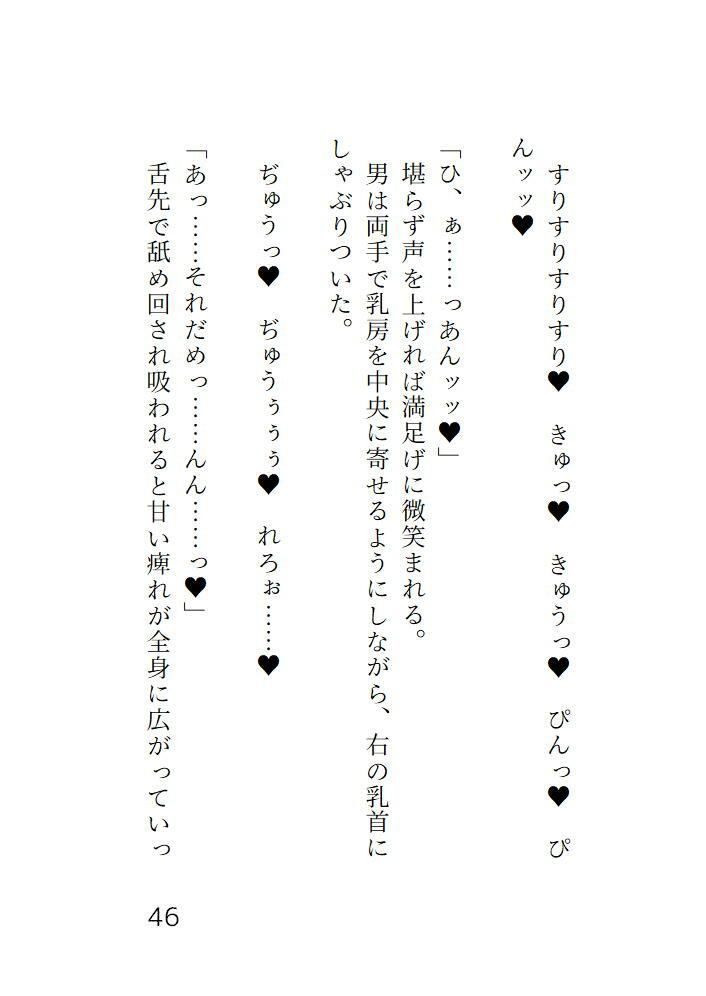 すりすりすりすり♥　きゅっ♥　きゅうっ♥　ぴんっ♥　ぴ
んッッ♥
「ひ、ぁ……っあんッッ♥」
堪らず声を上げれば満足げに微笑まれる。
男は両手で乳房を中央に寄せるようにしながら、右の乳首に
しゃぶりついた。
ぢゅうっ♥　ぢゅうぅぅぅ♥　れろぉ……♥
「あっ……それだめっ……んん……っ♥」
舌先で舐め回され吸われると甘い痺れが全身に広がっていっ
46